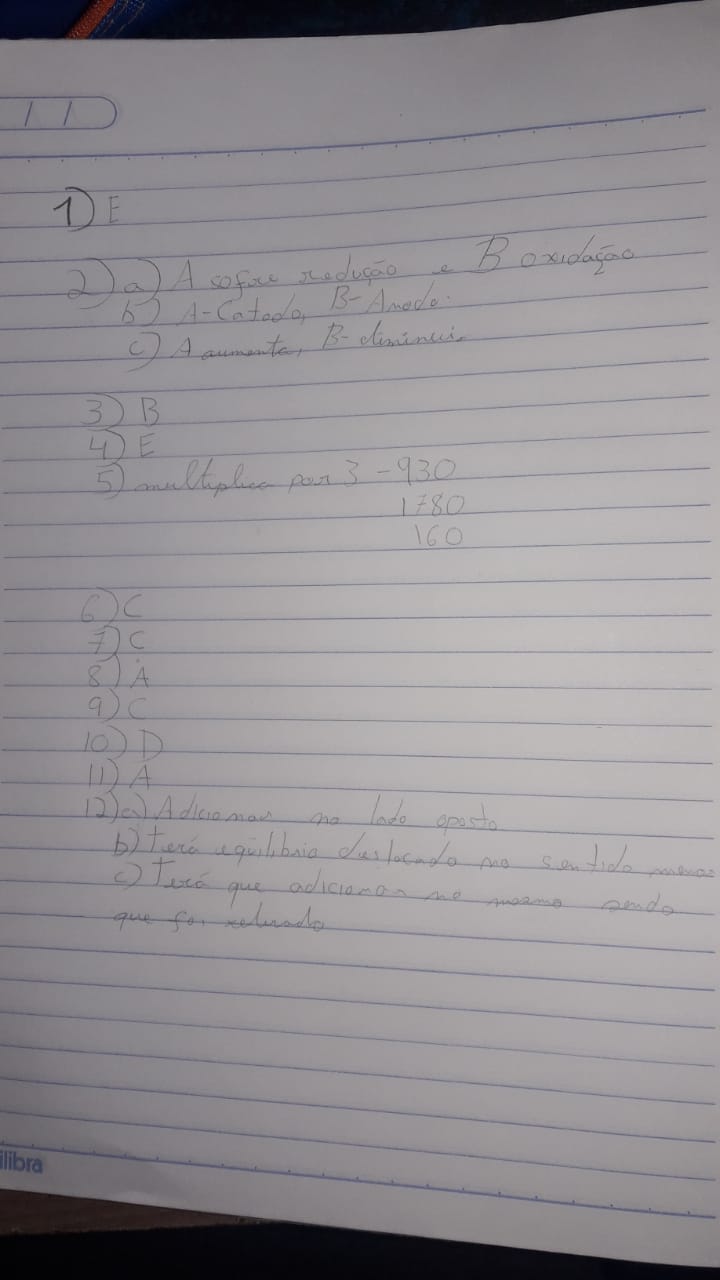 / /
1) E
2) a) A sofre redução e B oxidação
b) A-Catodo, B-Anodo.
c) A aumenta, B-diminui.
3) B
4) E
5) multiplica por 3 -930
1780
160
6) C
7) C
8) A
9) C
10) D
11) A
12) a) Adicionar no lado oposto
b) Terá eqüilibrio deslocado no sentido menos
c) Terá que adicionar no mesmo sendo
que foi retirado
ilibra